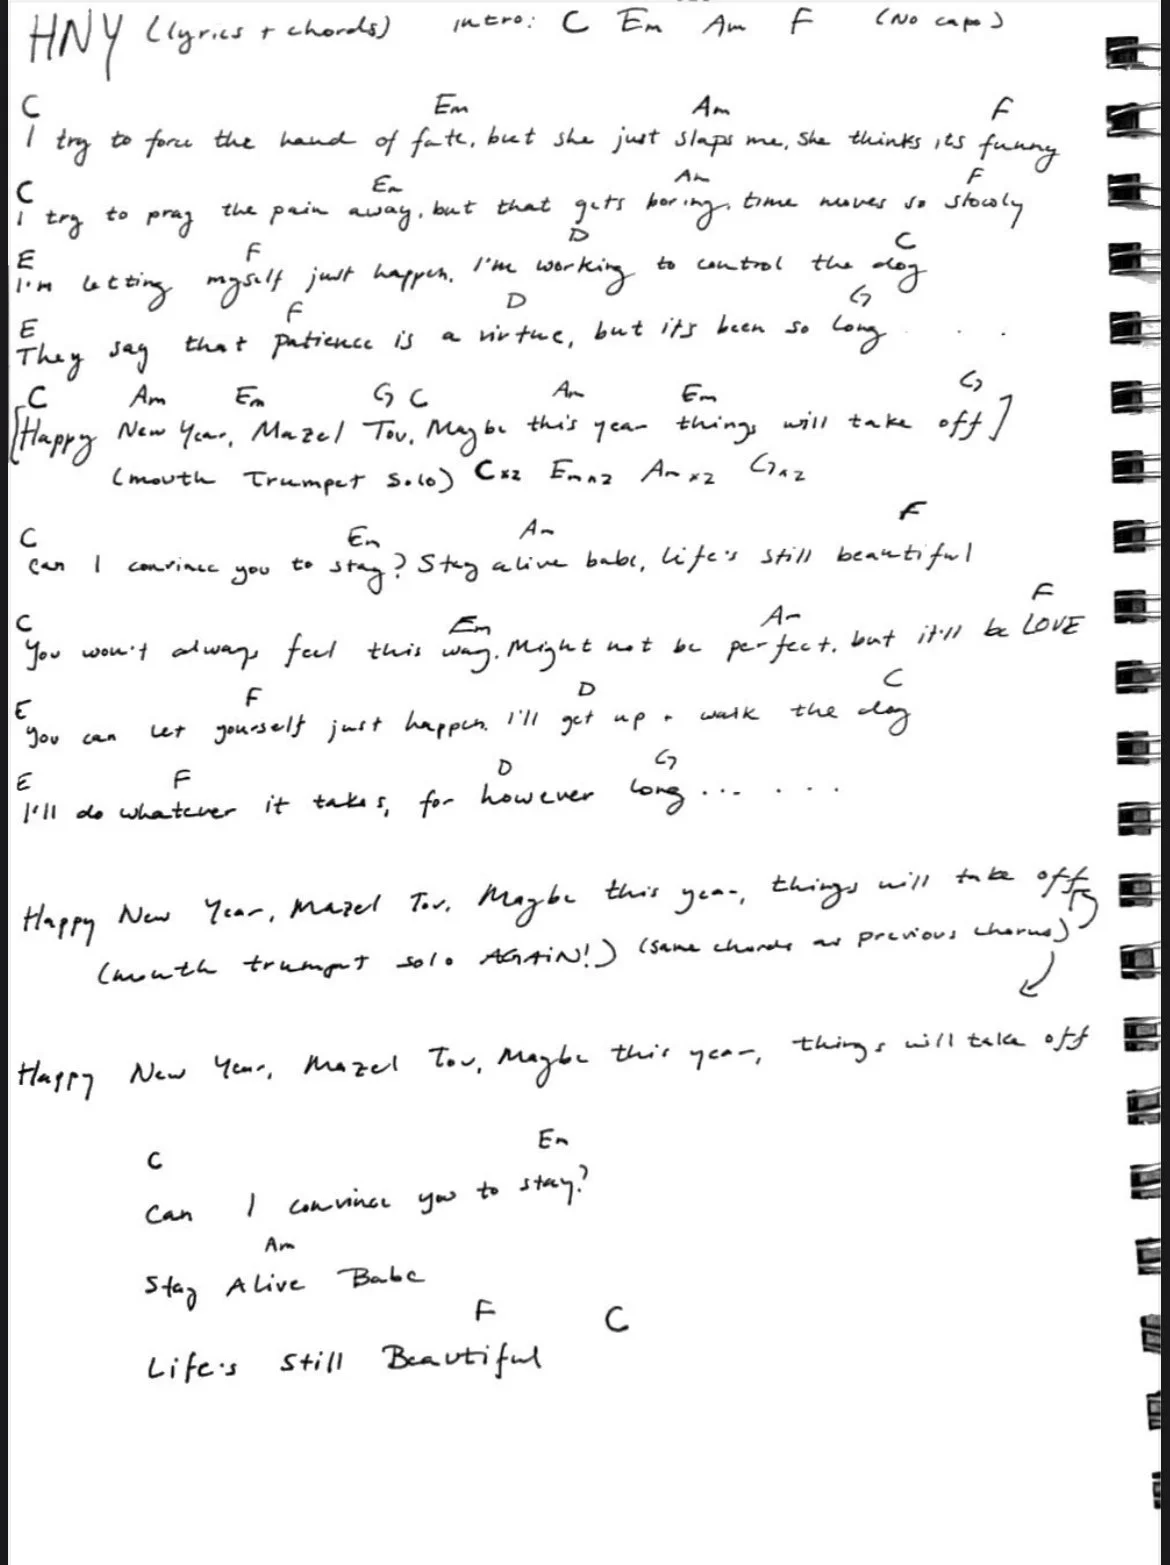 HNY (lyrics + chords) intro: C Em Am F (No capo)
C Em Am F
I try to force the hand of fate, but she just slaps me, she thinks its funny
C Em Am F
I try to pray the pain away, but that gets boring, time moves so slowly
E F D C
I'm letting myself just happen, I'm working to control the dog
E F D G
They say that patience is a virtue, but its been so long . . .
C Am Em G C Am Em G
[Happy New Year, Mazel Tov, Maybe this year things will take off]
(mouth Trumpet Solo) Cx2 Emx2 Amx2 Gx2
C Em Am F
Can I convince you to stay? Stay alive babe, Life's still beautiful
C Em Am F
You won't always feel this way. Might not be perfect, but it'll be LOVE
E F D C
You can let yourself just happen. I'll get up + walk the dog
E F D G
I'll do whatever it takes, for however long ... . . . .
Happy New Year, Mazel Tov, Maybe this year, things will take off
(mouth trumpet solo AGAiN!) (same chords as previous chorus)
Happy New Year, Mazel Tov, Maybe this year, things will take off
C Em
Can I convince you to stay?
Am
Stay Alive Babe
F C
Life's Still Beautiful